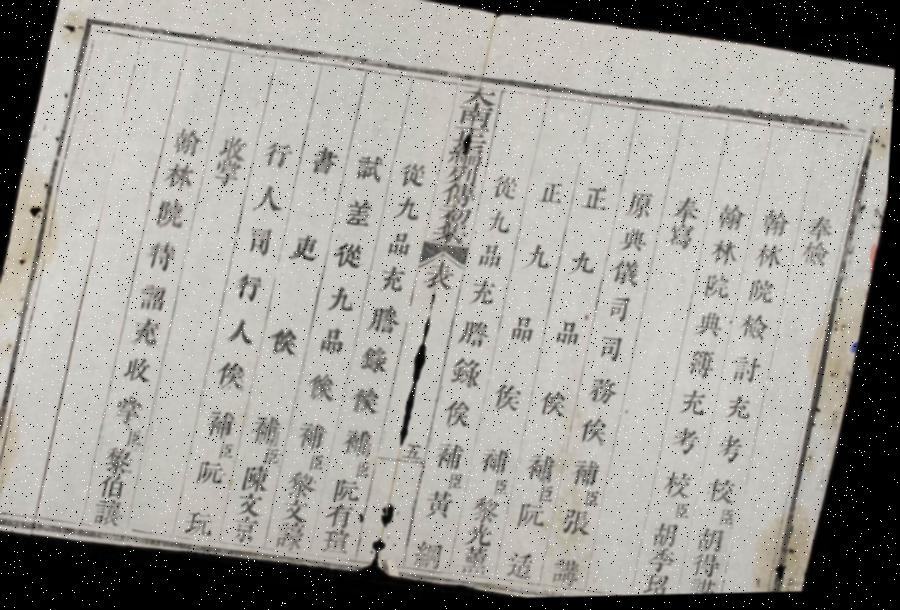 奉檢
翰林院檢討充考校臣胡得
翰林院典簿充考校臣胡季
奉寫
原典儀司司務俟補臣張講
正九品俟補臣阮适
正九品俟補臣黎光薰
從九品充謄錄俟補臣黃
大南正編列傳初集 表 五
從九品充謄錄俟補臣阮有
試差從九品俟補臣黎文謨
書吏俟補臣陳文京
行人司行人俟補臣阮玩
收掌
翰林院待詔充收掌臣黎伯讓